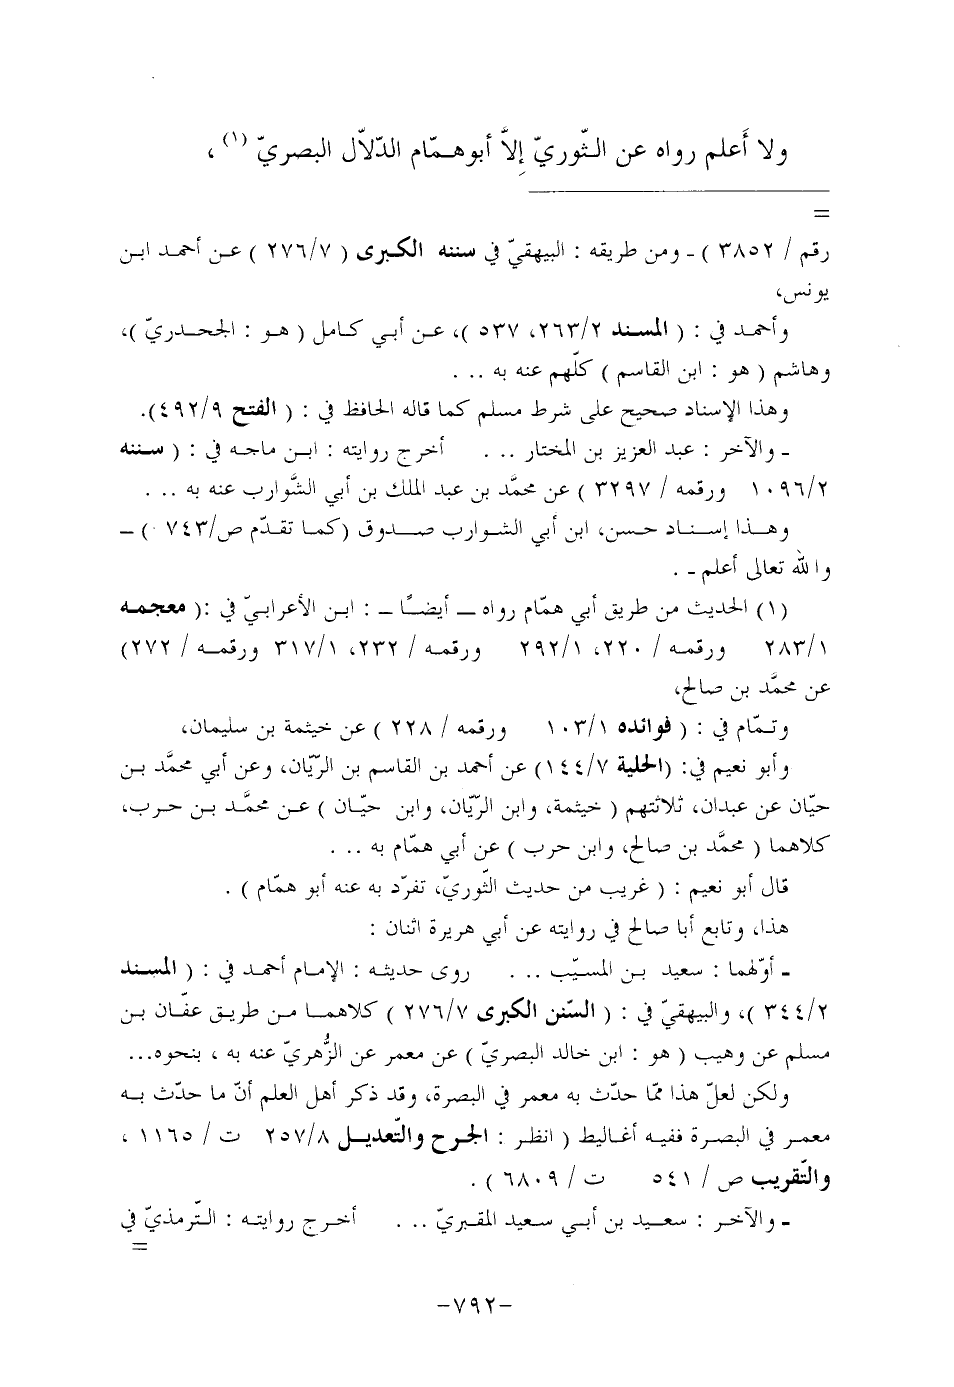 ولا أَعلم رواه عن الثّوريّ إلاَّ أبوهمّام الدّلاّل البصريّ (١) ،
=
رقم / ٣٨٥٢ ) ـ ومن طريقه : البيهقيّ في سننه الكبرى ( ٢٧٦/٧ ) عن أحمد ابن
يونس،
وأحمد في : ( المسند ٢٦٣/٢، ٥٣٧ )، عن أبي كامل ( هو : الجحدريّ )،
وهاشم ( هو : ابن القاسم ) كلّهم عنه به ...
وهذا الإسناد صحيح على شرط مسلم كما قاله الحافظ في : ( الفتح ٤٩٢/٩).
ـ والآخر : عبد العزيز بن المختار ... أخرج روايته : ابن ماجه في : ( سننه
١٠٩٦/٢ ورقمه / ٣٢٩٧ ) عن محمَّد بن عبد الملك بن أبي الشَّوارب عنه به ...
وهذا إسناد حسن، ابن أبي الشوارب صدوق (كما تقدّم ص/٧٤٣ ) ـ
والله تعالى أعلم ـ .
(١) الحديث من طريق أبي همّام رواه ـ أيضًا ـ : ابن الأعرابيّ في :( معجمه
٢٨٣/١ ورقمه / ٢٢٠، ٢٩٢/١ ورقمه / ٢٣٢، ٣١٧/١ ورقمه / ٢٧٢)
عن محمَّد بن صالح،
وتمّام في : ( فوائده ١٠٣/١ ورقمه / ٢٢٨ ) عن خيثمة بن سليمان،
وأبو نعيم في: (الحلية ١٤٤/٧) عن أحمد بن القاسم بن الريّان، وعن أبي محمَّد بن
حيّان عن عبدان، ثلاثتهم ( خيثمة، وابن الريّان، وابن حيّان ) عن محمَّد بن حرب،
كلاهما ( محمَّد بن صالح، وابن حرب ) عن أبي همّام به ...
قال أبو نعيم : ( غريب من حديث الثّوريّ، تفرّد به عنه أبو همّام ) .
هذا، وتابع أبا صالح في روايته عن أبي هريرة اثنان :
ـ أوّلهما : سعيد بن المسيّب ... روى حديثه : الإمام أحمد في : ( المسند
٣٤٤/٢ )، والبيهقيّ في : ( السّنن الكبرى ٢٧٦/٧ ) كلاهما من طريق عفّان بن
مسلم عن وهيب ( هو : ابن خالد البصريّ ) عن معمر عن الزُّهريّ عنه به ، بنحوه...
ولكن لعلّ هذا ممّا حدّث به معمر في البصرة، وقد ذكر أهل العلم أنّ ما حدّث به
معمر في البصرة ففيه أغاليط ( انظر : الجرح والتّعديل ٢٥٧/٨ ت / ١١٦٥ ،
والتّقريب ص / ٥٤١ ت / ٦٨٠٩ ) .
ـ والآخر : سعيد بن أبي سعيد المقبريّ ... أخرج روايته : التّرمذيّ في
=
-٧٩٢-